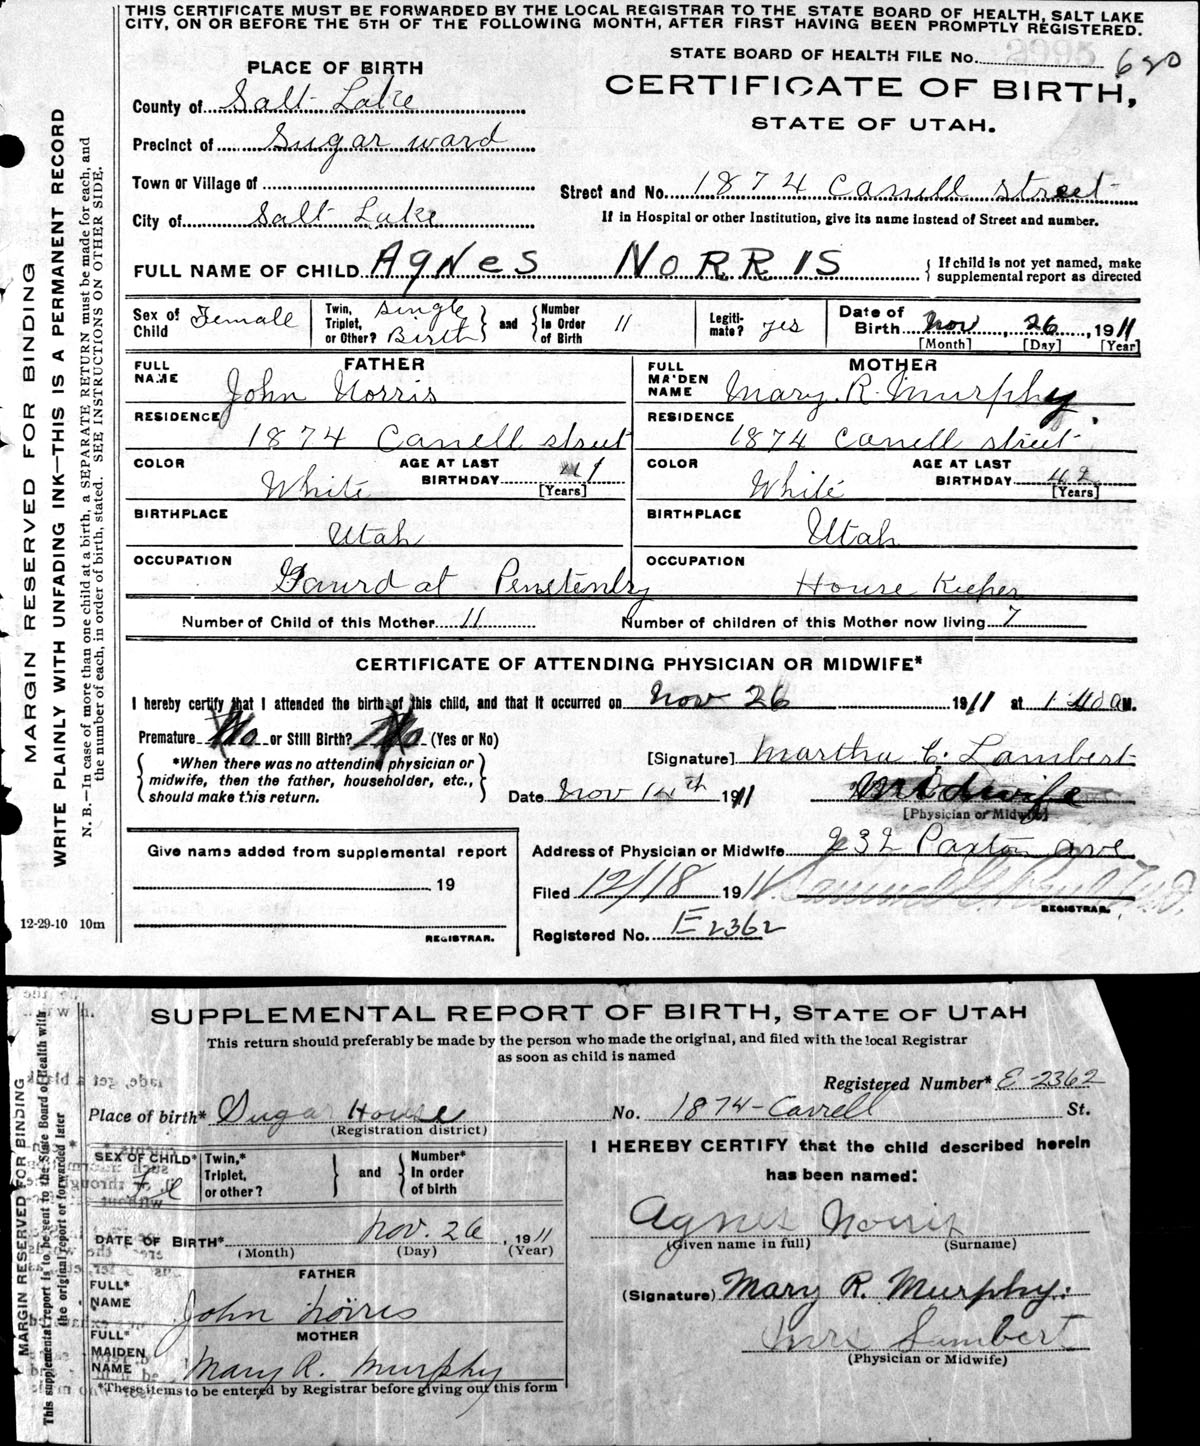 THIS CERTIFICATE MUST BE FORWARDED BY THE LOCAL REGISTRAR TO THE STATE BOARD OF HEALTH, SALT LAKE
CITY, ON OR BEFORE THE 5TH OF THE FOLLOWING MONTH, AFTER FIRST HAVING BEEN PROMPTLY REGISTERED.
STATE BOARD OF HEALTH FILE No. 620
PLACE OF BIRTH
CERTIFICATE OF BIRTH,
STATE OF UTAH.
County of Salt Lake
Precinct of Sugar ward
Town or Village of
Street and No. 1874 Canell street
City of Salt Lake
If in Hospital or other Institution, give its name instead of Street and number.
FULL NAME OF CHILD AgNes NoRRIS
If child is not yet named, make
supplemental report as directed
Sex of Child Female
Twin, Triplet, or Other? Single Birth
and
Number In Order of Birth 11
Legiti-mate? yes
Date of Birth Nov, 26, 1911
[Month] [Day] [Year]
FATHER
FULL NAME John Norris
MOTHER
FULL MAIDEN NAME Mary. R. Murphy.
RESIDENCE 1874 Canell street
RESIDENCE 1874 Canell street
COLOR White
AGE AT LAST BIRTHDAY
[Years]
COLOR White
AGE AT LAST BIRTHDAY 42
[Years]
BIRTHPLACE Utah
BIRTHPLACE Utah
OCCUPATION Gaurd at Penetentry
OCCUPATION House Keeper
Number of Child of this Mother 11
Number of children of this Mother now living 7
CERTIFICATE OF ATTENDING PHYSICIAN OR MIDWIFE*
I hereby certify that I attended the birth of this child, and that it occurred on Nov 26 1911 at 1:40 a M.
Premature No or Still Birth? No (Yes or No)
*When there was no attending physician or
midwife, then the father, householder, etc.,
should make this return.
[Signature] Martha C. Lambert
Date Nov 14th 1911
Midwife
[Physician or Midwife]
Give name added from supplemental report
19
REGISTRAR.
Address of Physician or Midwife 932 Paxton ave
Filed 12/18 1911
REGISTRAR.
Registered No. E2362
12-29-10 10m
MARGIN RESERVED FOR BINDING
WRITE PLAINLY WITH UNFADING INK—THIS IS A PERMANENT RECORD
N. B.—In case of more than one child at a birth, a SEPARATE RETURN must be made for each, and
the number of each, in order of birth, stated. SEE INSTRUCTIONS ON OTHER SIDE.
SUPPLEMENTAL REPORT OF BIRTH, STATE OF UTAH
This return should preferably be made by the person who made the original, and filed with the local Registrar
as soon as child is named
Registered Number* E-2362
Place of birth* Sugar House
(Registration district)
No. 1874-Carrell St.
SEX OF CHILD*
Twin,* Triplet, or other?
and
Number* In order of birth
I HEREBY CERTIFY that the child described herein
has been named:
Agnes Norris
(Given name in full) (Surname)
DATE OF BIRTH* Nov. 26, 1911
(Month) (Day) (Year)
FATHER
FULL* NAME John Norris
MOTHER
FULL* MAIDEN NAME Mary R. Murphy
(Signature) Mary R. Murphy.
Mrs Lambert
(Physician or Midwife)
*These items to be entered by Registrar before giving out this form
MARGIN RESERVED FOR BINDING
This supplemental report is to be sent to the State Board of Health with
the original report or forwarded later